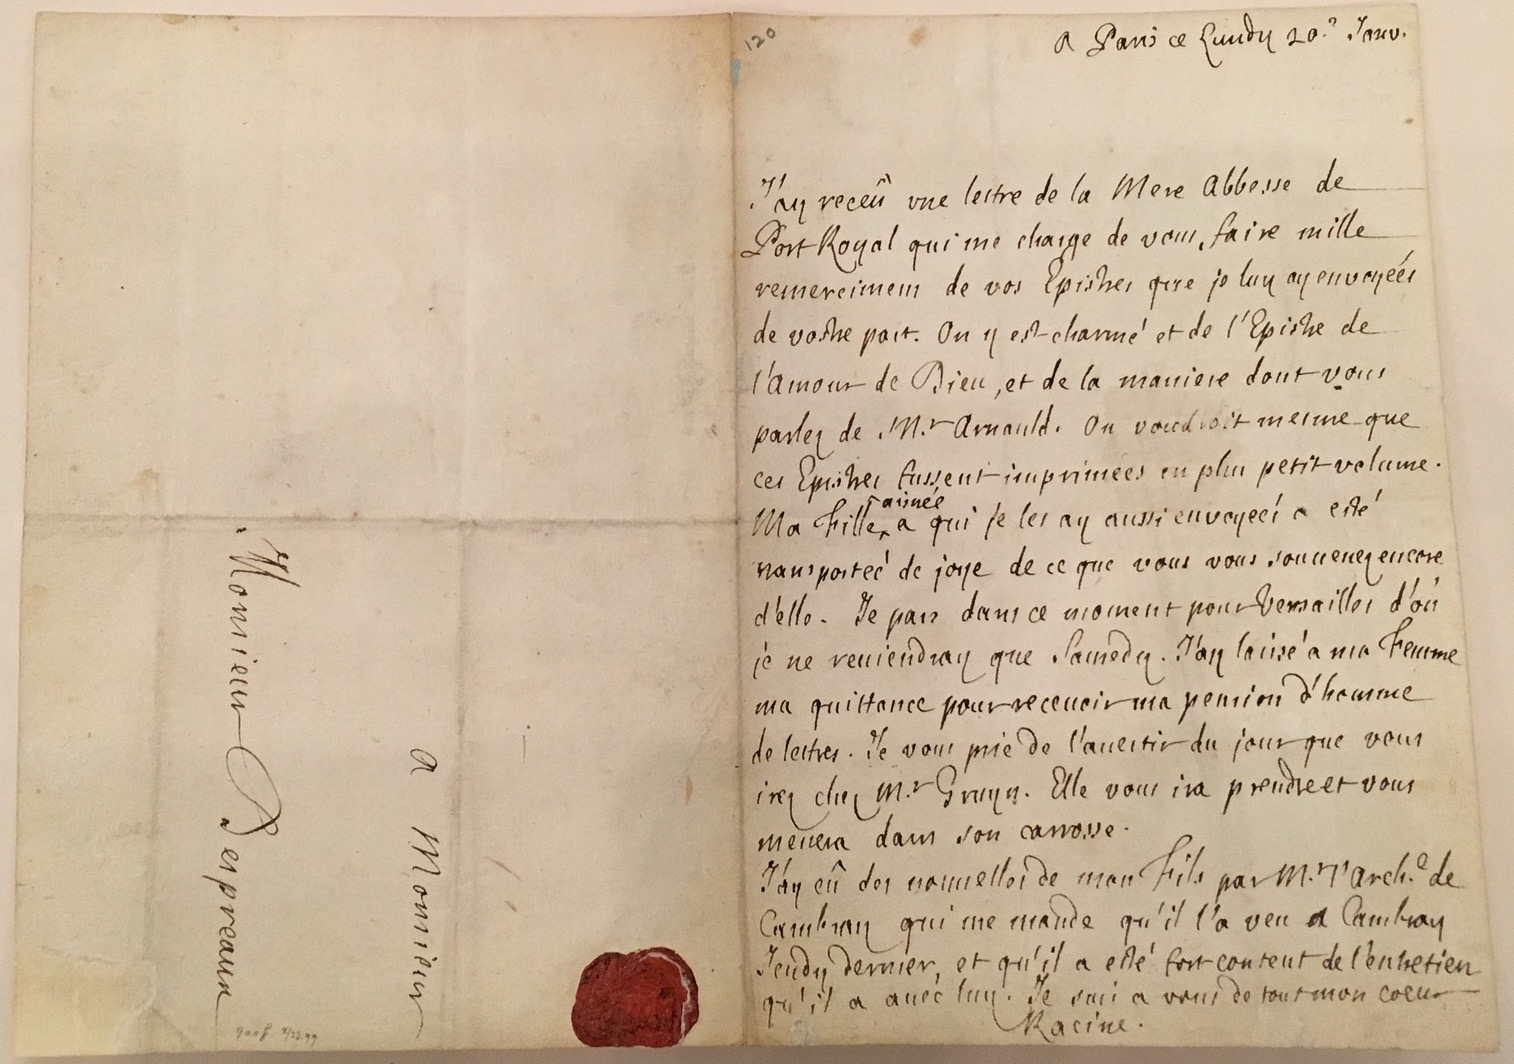 120
A Paris ce Lundy 20.e Janv.
J'ay receû vne lettre de la Mere Abbesse de
Port Royal qui me charge de vous faire mille
remercimens de vos Epistres que je luy ay envoyées
de vostre part. On y est charmé et de l'Epistre de
l'Amour de Dieu, et de la maniere dont vous
parlez de M.r Arnauld. On voudroit mesme que
ces Epistres fussent imprimées en plus petit volume.
Ma Fille aisnée, a qui je les ay aussi envoyées a esté
transportée de joye de ce que vous vous souuenez encore
d'elle. Je pars dans ce moment pour Versailles d'où
je ne reuiendray que Samedy. J'ay laissé a ma Femme
ma quittance pour receuoir ma pension d'homme
de lettres. Je vous prie de l'auertir du jour que vous
irez chez M.r Gruyn. Elle vous ira prendre et vous
menera dans son carrosse.
J'ay eû des nouuelles de mon Fils par M.r l'Arch.e de
Cambray qui me mande qu'il l'a veu a Cambray
Jeudy dernier, et qu'il a esté fort content de l'entretien
qu'il a auec luy. Je suis a vous de tout mon coeur
Racine.
A Monsieur
Monsieur Despreaux